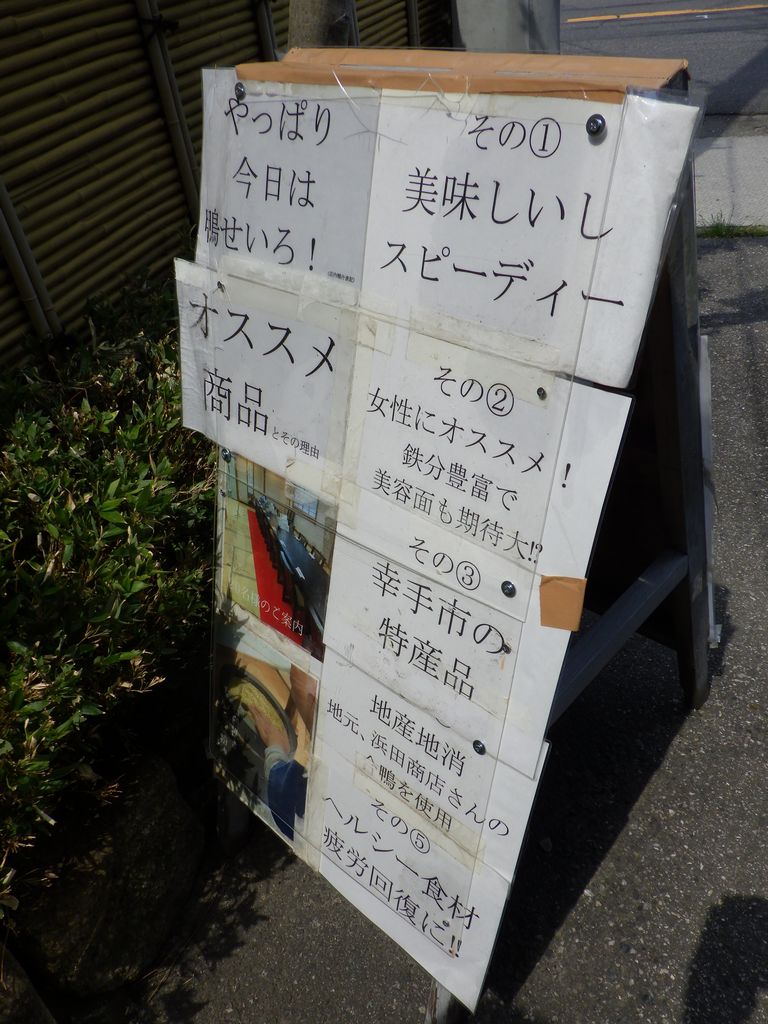 やっぱり
今日は
鴨せいろ！
オススメ
商品とその理由
その①
美味しいし
スピーディー
その②
女性にオススメ！
鉄分豊富で
美容面も期待大!?
その③
幸手市の
特産品
地産地消
地元、浜田商店さんの
鴨を使用
その⑤
ヘルシー食材
疲労回復に!!
のご案内